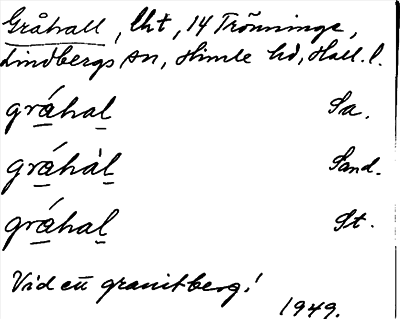 Gråhall, lht, 14 Trönninge,
Lindbergs sn, Himle hd, Hall. l.
gráhal Sa.
gráhàl Sand.
gráhal St.
Vid ett granitberg!
1949.